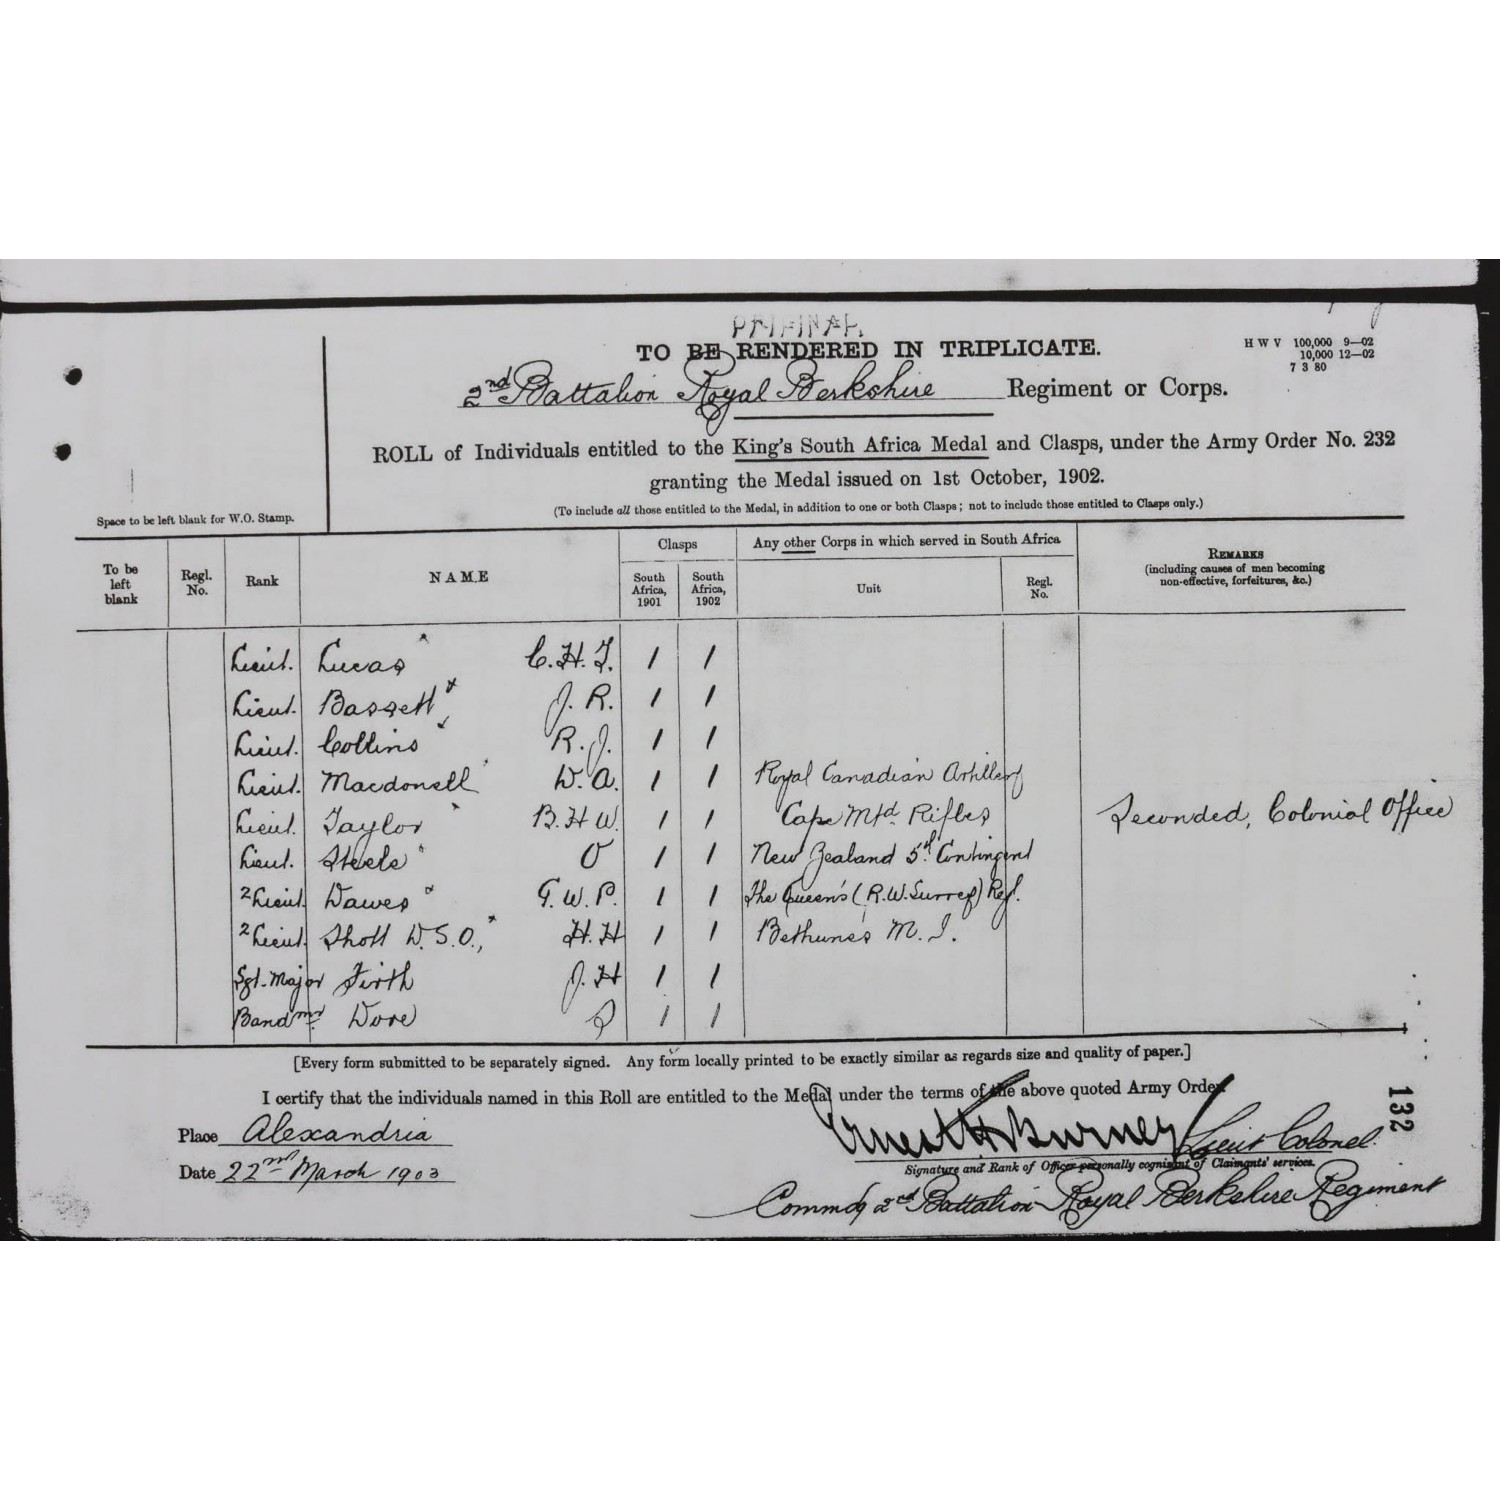 ORIGINAL
TO BE RENDERED IN TRIPLICATE.
H W V 100,000 9—02
10,000 12—02
7 3 80
2nd Battalion Royal Berkshire Regiment or Corps.
ROLL of Individuals entitled to the King's South Africa Medal and Clasps, under the Army Order No. 232
granting the Medal issued on 1st October, 1902.
(To include all those entitled to the Medal, in addition to one or both Clasps; not to include those entitled to Clasps only.)
Space to be left blank for W.O. Stamp.
To be left blank Regl. No. Rank NAME Clasps South Africa, 1901 South Africa, 1902 Any other Corps in which served in South Africa Unit Regl. No. REMARKS (including causes of men becoming non-effective, forfeitures, &c.)
Lieut. Lucas C.H.T. 1 1
Lieut. Bassett J.R. 1 1
Lieut. Collins R.J. 1 1
Lieut. Macdonell W.A. 1 1 Royal Canadian Artillery
Lieut. Taylor B.H.W. 1 1 Cape Mtd. Rifles Seconded, Colonial Office
Lieut. Steele O 1 1 New Zealand 5th Contingent
2 Lieut. Dawes G.W.P. 1 1 The Queen's (R.W. Surrey) Regt.
2 Lieut. Shott D.S.O., H.H 1 1 Bethune's M.I.
Sgt.-Major Firth J.H 1 1
Bandmr. Dore 1 1
[Every form submitted to be separately signed. Any form locally printed to be exactly similar as regards size and quality of paper.]
I certify that the individuals named in this Roll are entitled to the Medal under the terms of the above quoted Army Order.
Place Alexandria
Date 22nd March 1903
Ernest H Burney Lieut Colonel.
Signature and Rank of Officer personally cognisant of Claimants' services.
Commdg 2nd Battalion Royal Berkshire Regiment
132